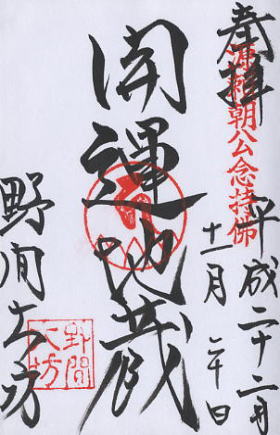 奉拝
源頼朝公念持佛
平成二十二年
十一月二十日
開運地蔵
野間大坊
野間
大坊